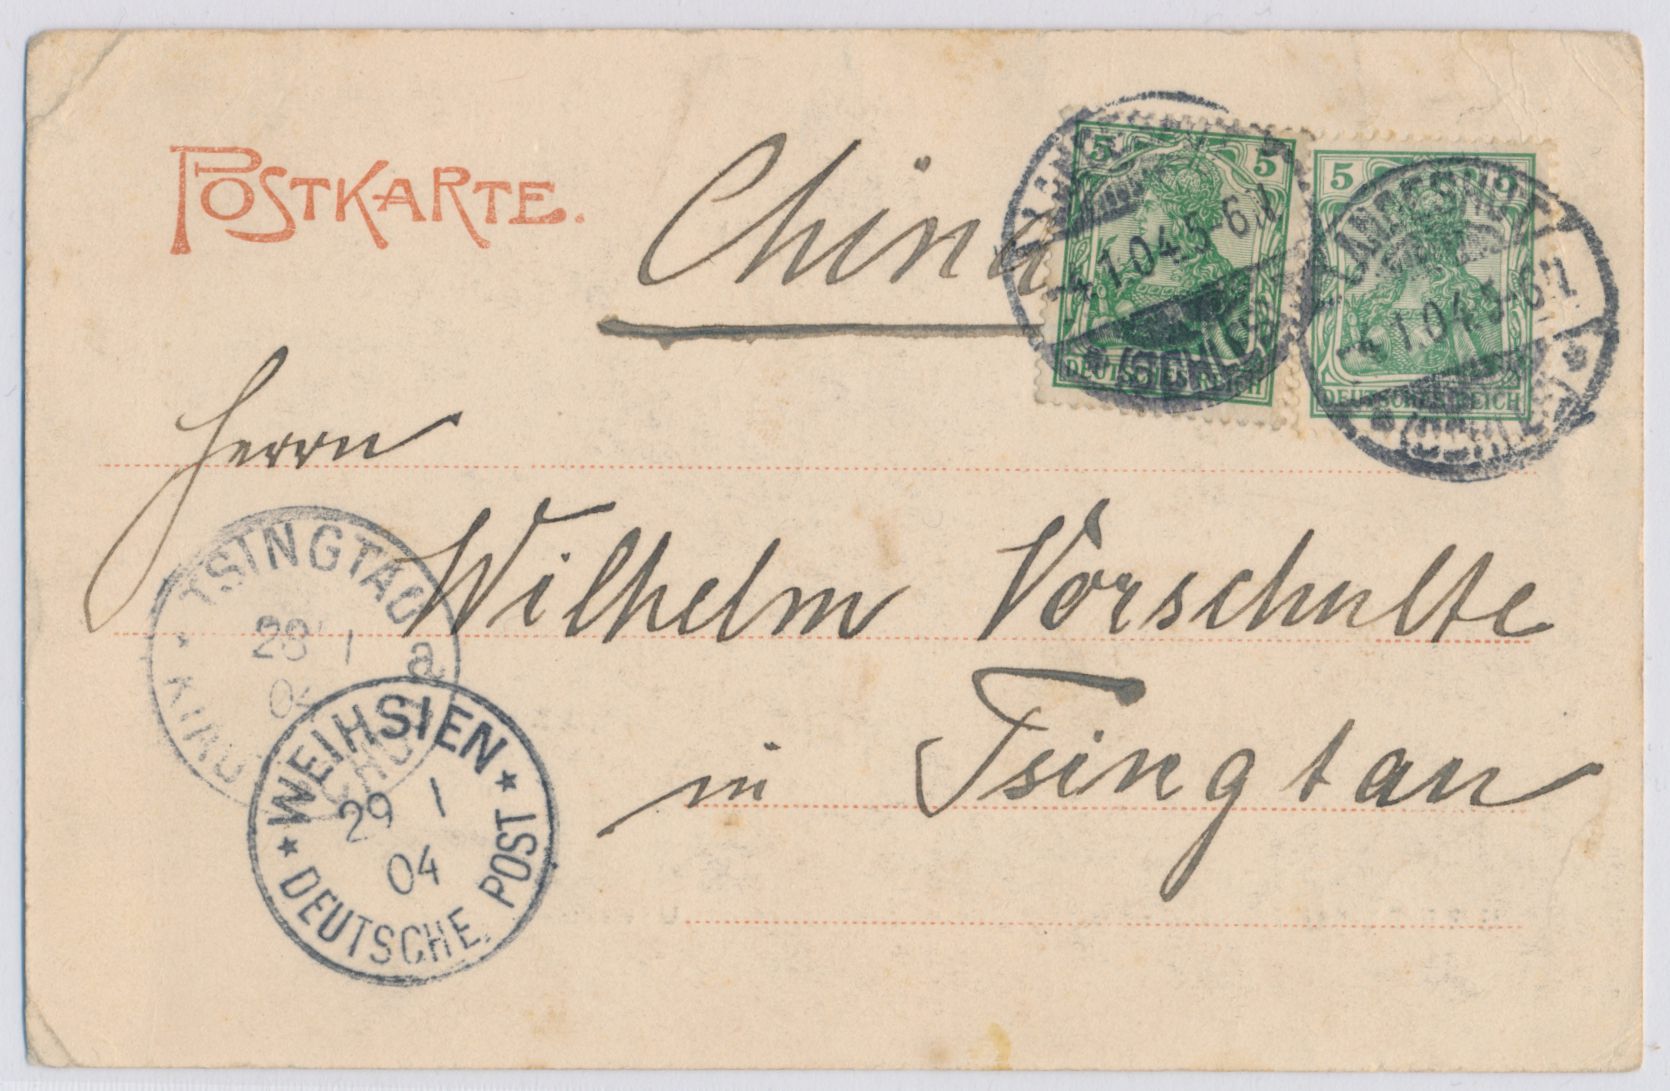 POSTKARTE.
China
5 5
DEUTSCHES REICH
5
DEUTSCHES REICH
LANDESHUT
4.1.04.5-6N
* (SCHLES)
LANDESHUT
4.1.04.5-6N
* (SCHLES) *
Herrn
Wilhelm Vorschulte
in Tsingtau
TSINGTAU
28 1
04
a
KIAUTSCHOU
* WEIHSIEN *
29 1
04
DEUTSCHE POST